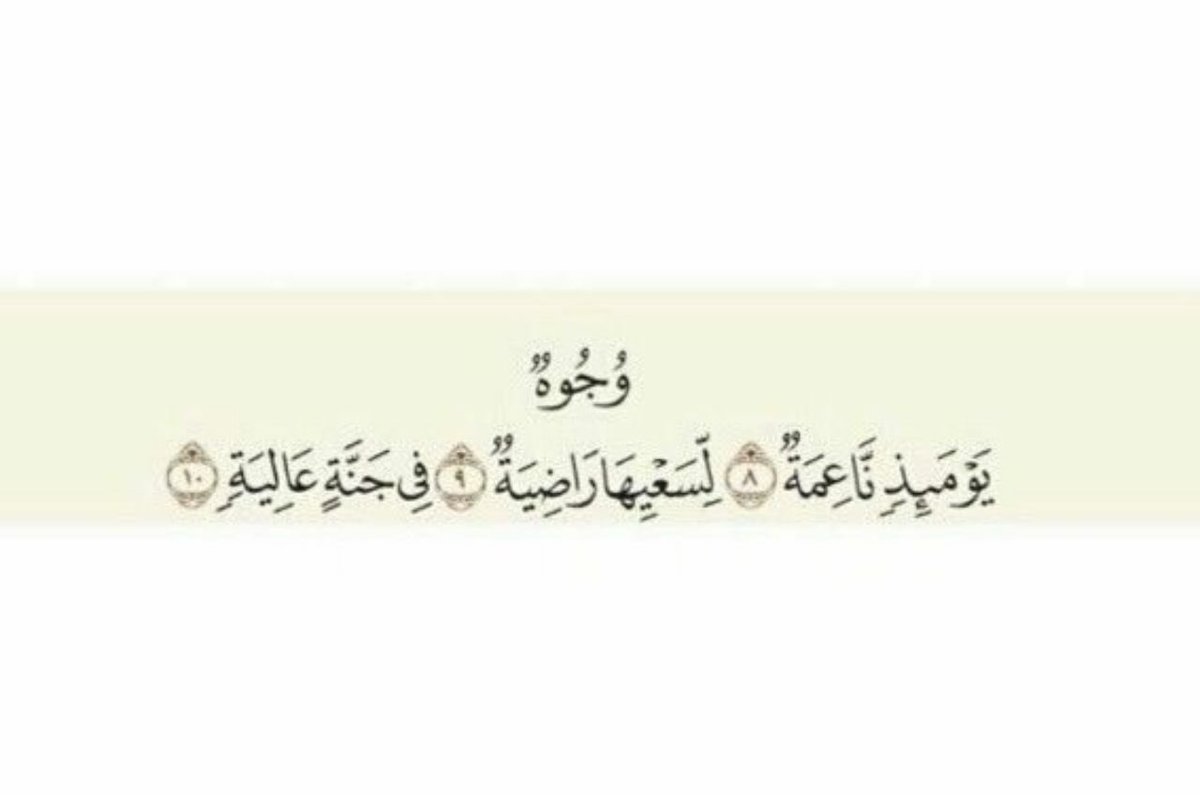 وُجُوهٌ
يَوْمَئِذٍ نَّاعِمَةٌ ٨ لِّسَعْيِهَا رَاضِيَةٌ ٩ فِي جَنَّةٍ عَالِيَةٍ ١٠